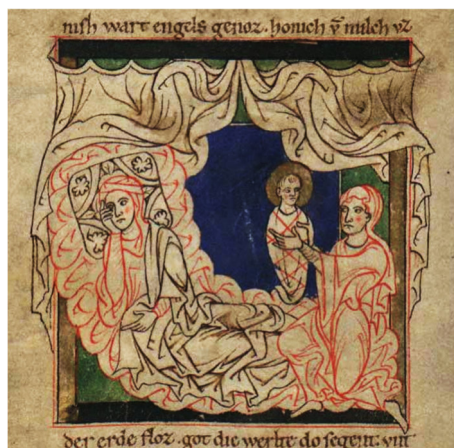 nish wart engels genoz . honich v̄ milch vz
der erde floz . got die werlte do segent . vnt